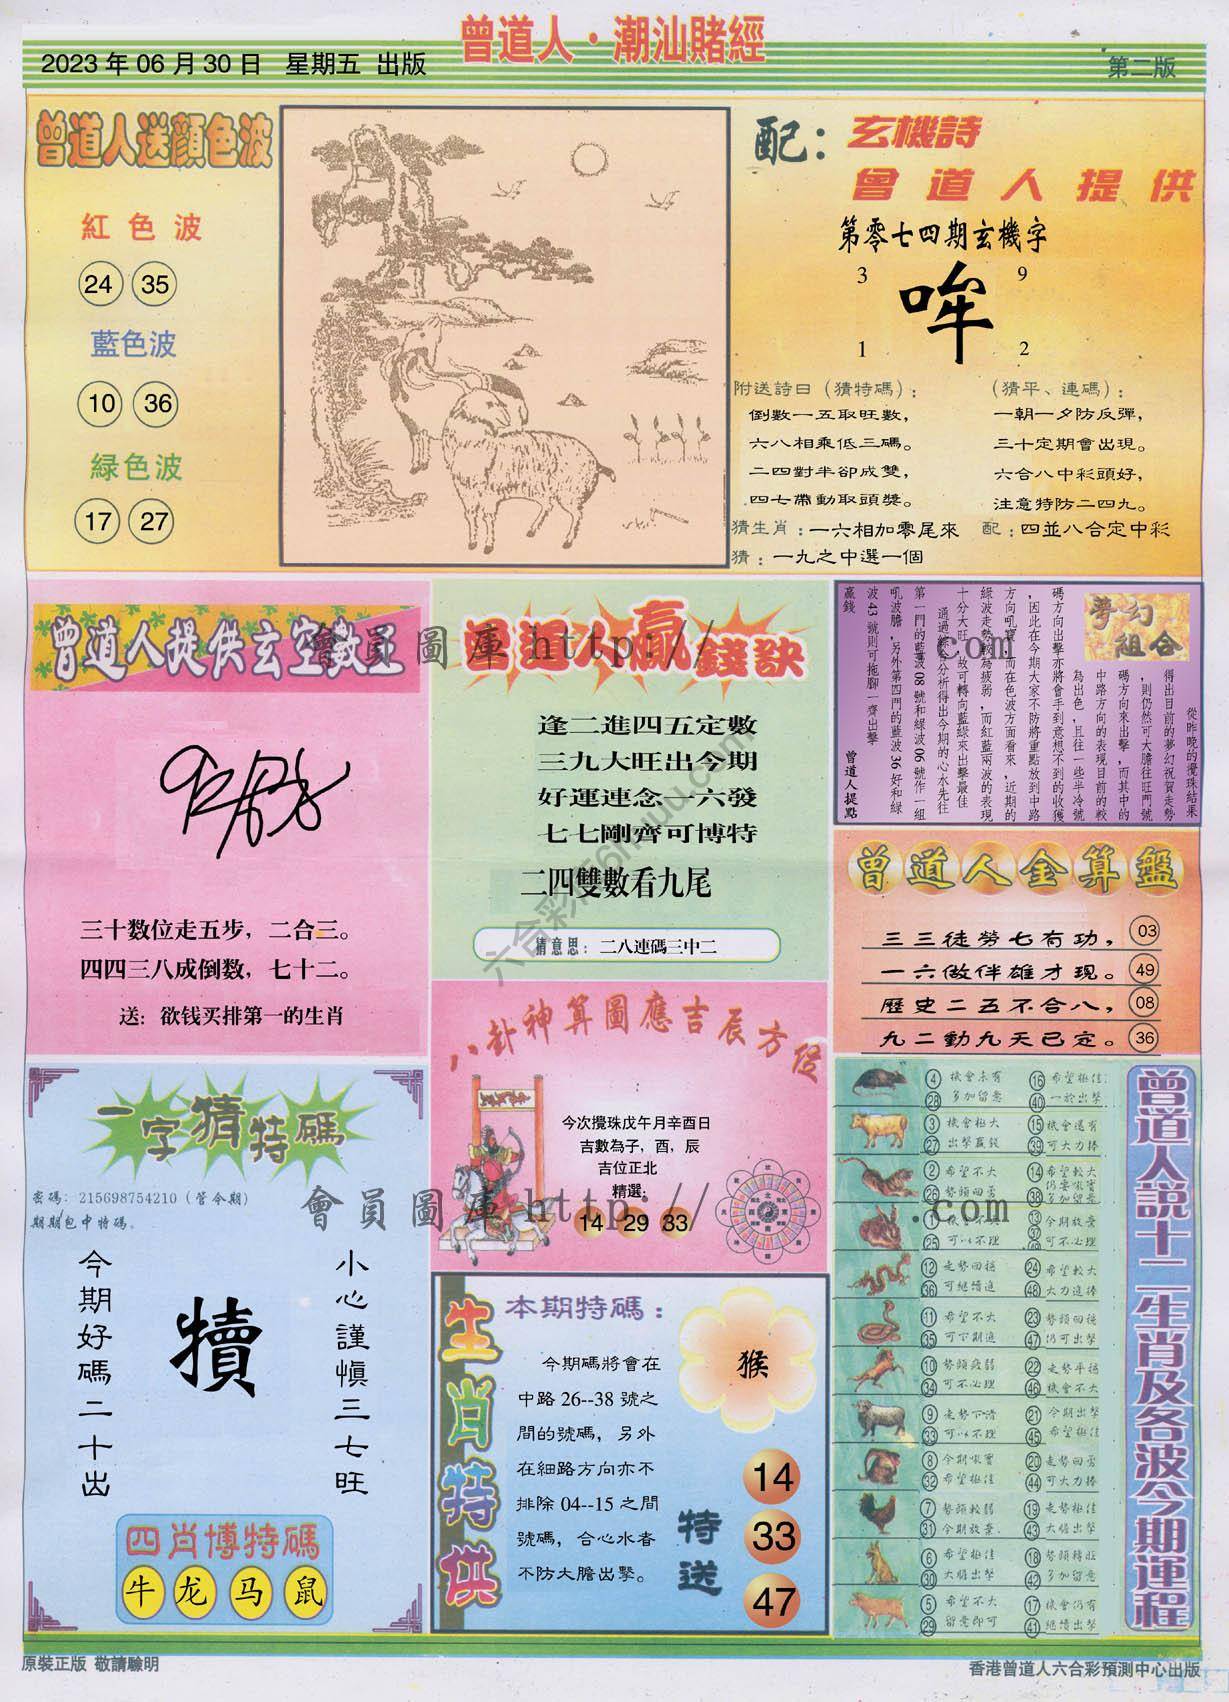 曾道人·潮汕賭經
2023年06月30日 星期五 出版
第二版
曾道人送顏色波
紅色波
24 35
藍色波
10 36
緑色波
17 27
配：玄機詩
曾道人提供
第零七四期玄機字
3 9
哞
1 2
附送詩日（猜特碼）：
倒數一五取旺數，
六八相乘低三碼。
二四對半卻成雙，
四七帶動取頭獎。
（猜平、連碼）：
一朝一夕防反彈，
三十定期會出現。
六合八中彩頭好，
注意特防二四九。
猜生肖：一六相加零尾來 配：四並八合定中彩
猜：一九之中選一個
曾道人提供玄空數王
三十数位走五步，二合三。
四四三八成倒数，七十二。
送：欲钱买排第一的生肖
曾道人贏錢訣
逢二進四五定數
三九大旺出今期
好運連念一六發
七七剛齊可博特
二四雙數看九尾
猜意思：二八連碼三中二
夢幻組合
從昨晚的攪珠結果
得出目前的夢幻祝賀走勢
，則仍然可大膽往旺門號
碼方向來出擊，而其中的
中路方向的表現目前的較
為出色，且往一些半冷號
碼方向出擊亦將會手到意想不到的收獲
，因此在今期大家不防將重點放到中路
方向吼寶，而在色波方面看來，近期的
綠波走勢較為疲弱，而紅藍兩波的表現
十分大旺，故可轉向藍綠來出擊最佳
通過綜合分析得出今期的心水先往
第一門的藍波08號和綠波06號作一組
吼波膽，另外第四門的藍波36好和綠
波43號則可拖腳一齊出擊
贏錢
曾道人提點
曾道人金算盤
三三徒勞七有功， 03
一六做伴雄才現。 49
歷史二五不合八， 08
九二動九天已定。 36
八卦神算圖應吉辰方位
今次攪珠戊午月辛酉日
吉數為子，酉，辰
吉位正北
精選：
14 29 33
一字猜特碼
密碼：215698754210（管令期）
期期包中特碼。
今期好碼二十出
犢
小心謹慎三七旺
四肖博特碼
牛 龙 马 鼠
生肖特供
本期特碼：
今期碼將會在
中路26--38號之
間的號碼，另外
在細路方向亦不
排除04--15之間
號碼，合心水者
不防大膽出擊。
猴
特送
14
33
47
曾道人説十二生肖及各波今期運程
4 機會未有 16 希望極佳
28 多加留意 40 一於出擊
3 機會極大 15 機會還有
27 出擊贏錢 39 可大力捧
2 希望不大 14 希望較大
26 勢頭回勇 38 仍要吼實多加留意
1 機會不大 13 今期放棄
25 可以不理 37 可不必理
12 走勢回穩 24 希望較大
36 可繼續追 48 大力追捧
11 希望不大 23 勢頭回穩
35 可下期追 47 仍可出擊
10 勢頭疲弱 22 走勢平穩
34 可不必理 46 機會不大
9 走勢下滑 21 今期出擊
33 可以不理 45 希望極佳
8 今期吼實 20 走勢回勇
32 希望極佳 44 可大力捧
7 勢頭較弱 19 走勢極佳
31 今期放棄 43 大膽出擊
6 希望極佳 18 勢頭轉旺
30 大膽出擊 42 多加留意
5 希望不大 17 機會仍有
29 留意即可 41 繼續出擊
會員圖庫 http:// .com
會員圖庫 http:// .com
原裝正版 敬請驗明
香港曾道人六合彩預測中心出版